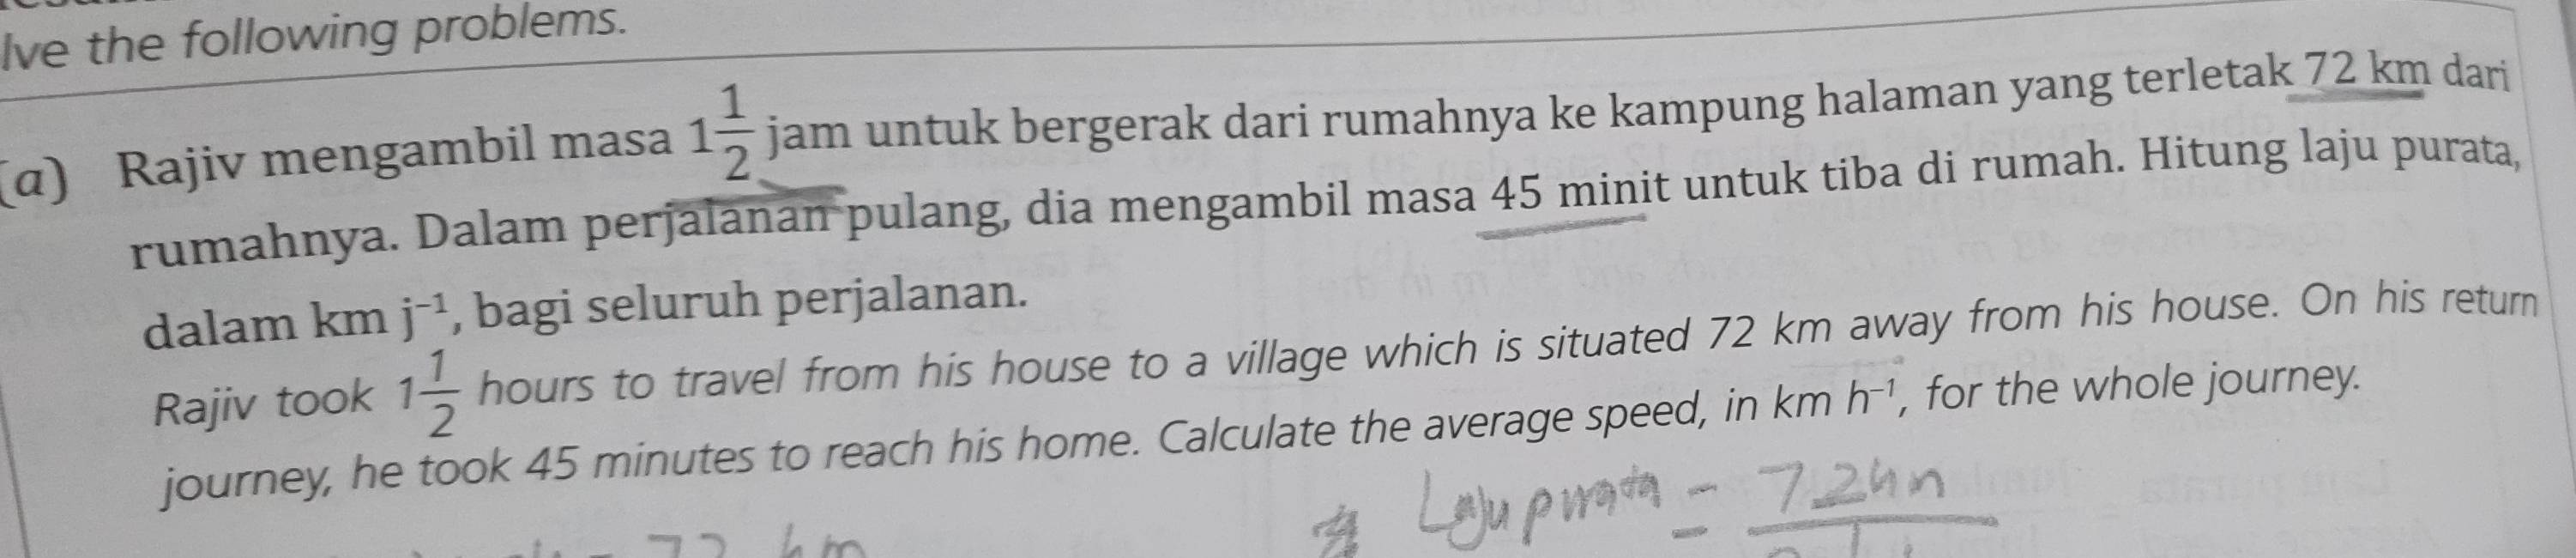 lve the following problems.
(a) Rajiv mengambil masa 1 1/2 jam untuk bergerak dari rumahnya ke kampung halaman yang terletak 72 km dari
rumahnya. Dalam perjalanan pulang, dia mengambil masa 45 minit untuk tiba di rumah. Hitung laju purata,
dalam km j⁻¹, bagi seluruh perjalanan.
Rajiv took 1 1/2 hours to travel from his house to a village which is situated 72 km away from his house. On his return
journey, he took 45 minutes to reach his home. Calculate the average speed, in km h⁻¹, for the whole journey.
Laju purata = 72
72 km